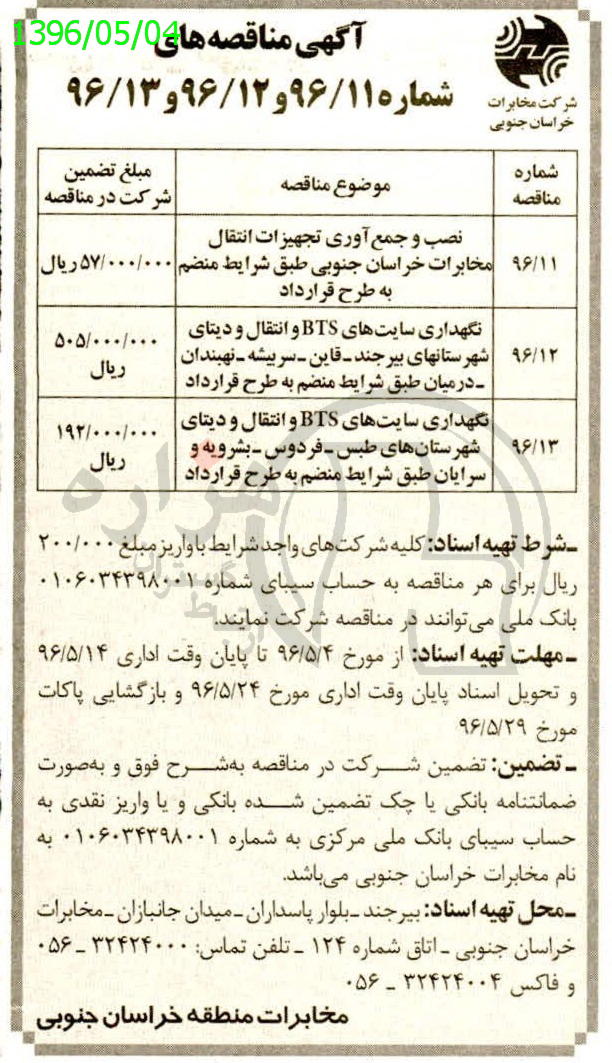 1396/05/04
آگهی مناقصه‌های
شماره ۹۶/۱۱و۹۶/۱۲و۹۶/۱۳
شرکت مخابرات
خراسان جنوبی
شماره مناقصه
موضوع مناقصه
مبلغ تضمین شرکت در مناقصه
۹۶/۱۱
نصب و جمع‌آوری تجهیزات انتقال
مخابرات خراسان جنوبی طبق شرایط منضم
به طرح قرارداد
۵۷/۰۰۰/۰۰۰ ریال
۹۶/۱۲
نگهداری سایت‌های BTS و انتقال و دیتای
شهرستانهای بیرجند ـ قاین ـ سربیشه ـ نهبندان
ـ درمیان طبق شرایط منضم به طرح قرارداد
۵۰۵/۰۰۰/۰۰۰
ریال
۹۶/۱۳
نگهداری سایت‌های BTS و انتقال و دیتای
شهرستان‌های طبس ـ فردوس ـ بشرویه و
سرایان طبق شرایط منضم به طرح قرارداد
۱۹۲/۰۰۰/۰۰۰
ریال
ـ شرط تهیه اسناد: کلیه شرکت‌های واجد شرایط با واریز مبلغ ۲۰۰/۰۰۰
ریال برای هر مناقصه به حساب سیبای شماره ۰۱۰۶۰۳۴۳۹۸۰۰۱
بانک ملی می‌توانند در مناقصه شرکت نمایند.
ـ مهلت تهیه اسناد: از مورخ ۹۶/۵/۴ تا پایان وقت اداری ۹۶/۵/۱۴
و تحویل اسناد پایان وقت اداری مورخ ۹۶/۵/۲۴ و بازگشایی پاکات
مورخ ۹۶/۵/۲۹
ـ تضمین: تضمین شرکت در مناقصه به‌شرح فوق و به‌صورت
ضمانتنامه بانکی یا چک تضمین شده بانکی و یا واریز نقدی به
حساب سیبای بانک ملی مرکزی به شماره ۰۱۰۶۰۳۴۳۹۸۰۰۱ به
نام مخابرات خراسان جنوبی می‌باشد.
ـ محل تهیه اسناد: بیرجند ـ بلوار پاسداران ـ میدان جانبازان ـ مخابرات
خراسان جنوبی ـ اتاق شماره ۱۲۴ ـ تلفن تماس: ۳۲۴۲۴۰۰۰ ـ ۰۵۶
و فاکس ۳۲۴۲۴۰۰۴ ـ ۰۵۶
مخابرات منطقه خراسان جنوبی
هزاره